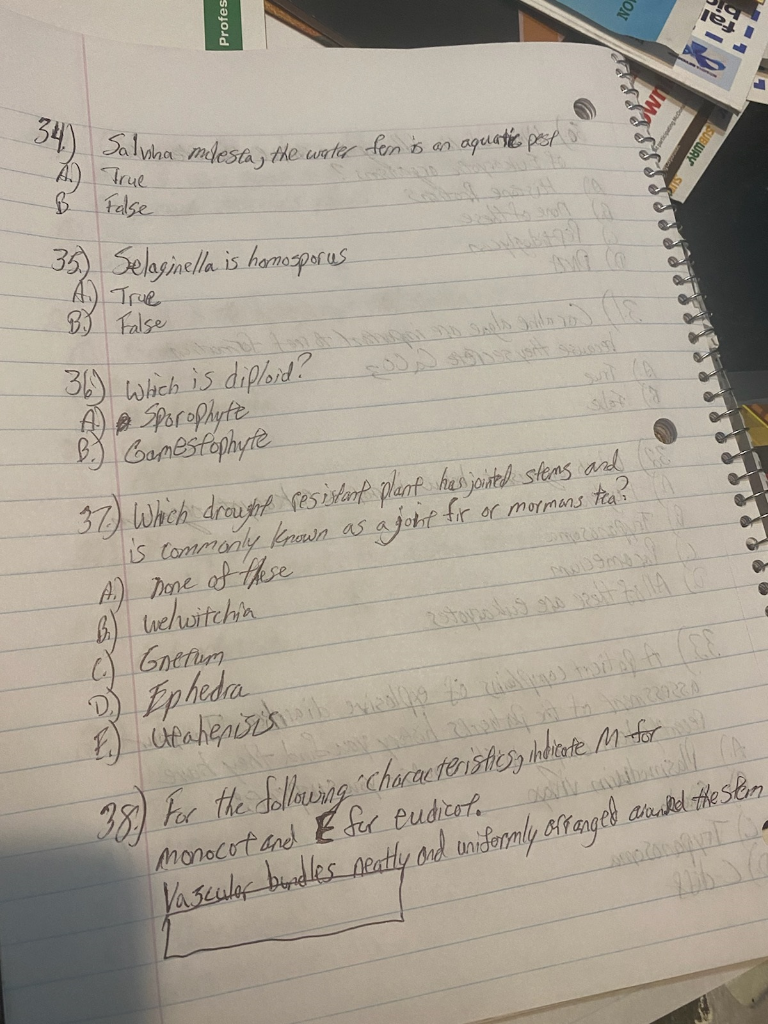 Profes
NOV
SUBURY
34.) Salvina molesta, the water fern is an aquatic pest
A.) True
B False
35.) Selaginella is homosporus
A.) True
B.) False
36.) Which is diploid?
A.) Sporophyte
B.) Gamestophyte
37.) Which drought resistant plant has jointed stems and
is commonly known as a joint fir or mormans tea?
A.) none of these
B.) welwitchia
C.) Gnetum
D.) Ephedra
E.) Utahenisis
38.) For the following characteristics, indicate M for
monocot and E for eudicot.
Vascular bundles neatly and uniformly arranged around the stem